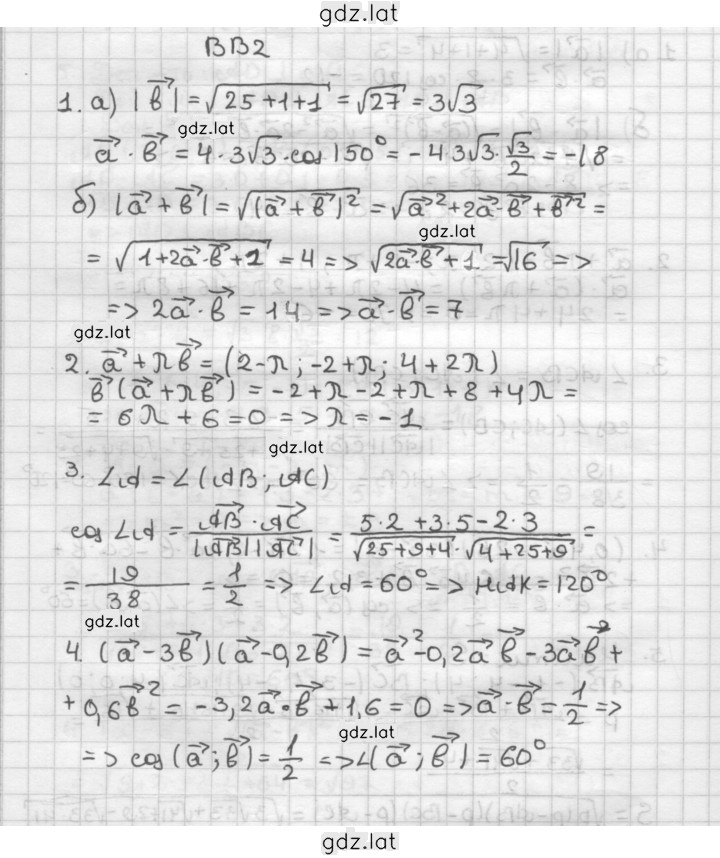 gdz.lat
ВВ2
1. а) |b⃗| = √(25+1+1) = √27 = 3√3
gdz.lat
a⃗ · b⃗ = 4 · 3√3 · cos 150° = -4·3√3 · √3/2 = -18
б) |a⃗ + b⃗| = √((a⃗ + b⃗)²) = √(a⃗² + 2a⃗·b⃗ + b⃗²) =
gdz.lat
= √(1 + 2a⃗·b⃗ + 1) = 4 => √(2a⃗·b⃗ + 1) = √16 =>
=> 2a⃗·b⃗ = 14 => a⃗·b⃗ = 7
gdz.lat
2. a⃗ + πb⃗ = (2-π; -2+π; 4+2π)
b⃗(a⃗ + πb⃗) = -2+π-2+π+8+4π =
= 6π + 6 = 0 => π = -1
gdz.lat
3. ∠A = ∠(AB; AC)
cos ∠A = AB⃗ · AC⃗ / |AB⃗||AC⃗| = 5·2 + 3·5 - 2·3 / √(25+9+4) · √(4+25+9) =
= 19/38 = 1/2 => ∠A = 60° => MAK = 120°
gdz.lat
4. (a⃗ - 3b⃗)(a⃗ - 0,2b⃗) = a⃗² - 0,2a⃗b⃗ - 3a⃗b⃗ +
+ 0,6b⃗² = -3,2a⃗·b⃗ + 1,6 = 0 => a⃗·b⃗ = 1/2 =>
gdz.lat
=> cos(a⃗; b⃗) = 1/2 => ∠(a⃗; b⃗) = 60°
gdz.lat